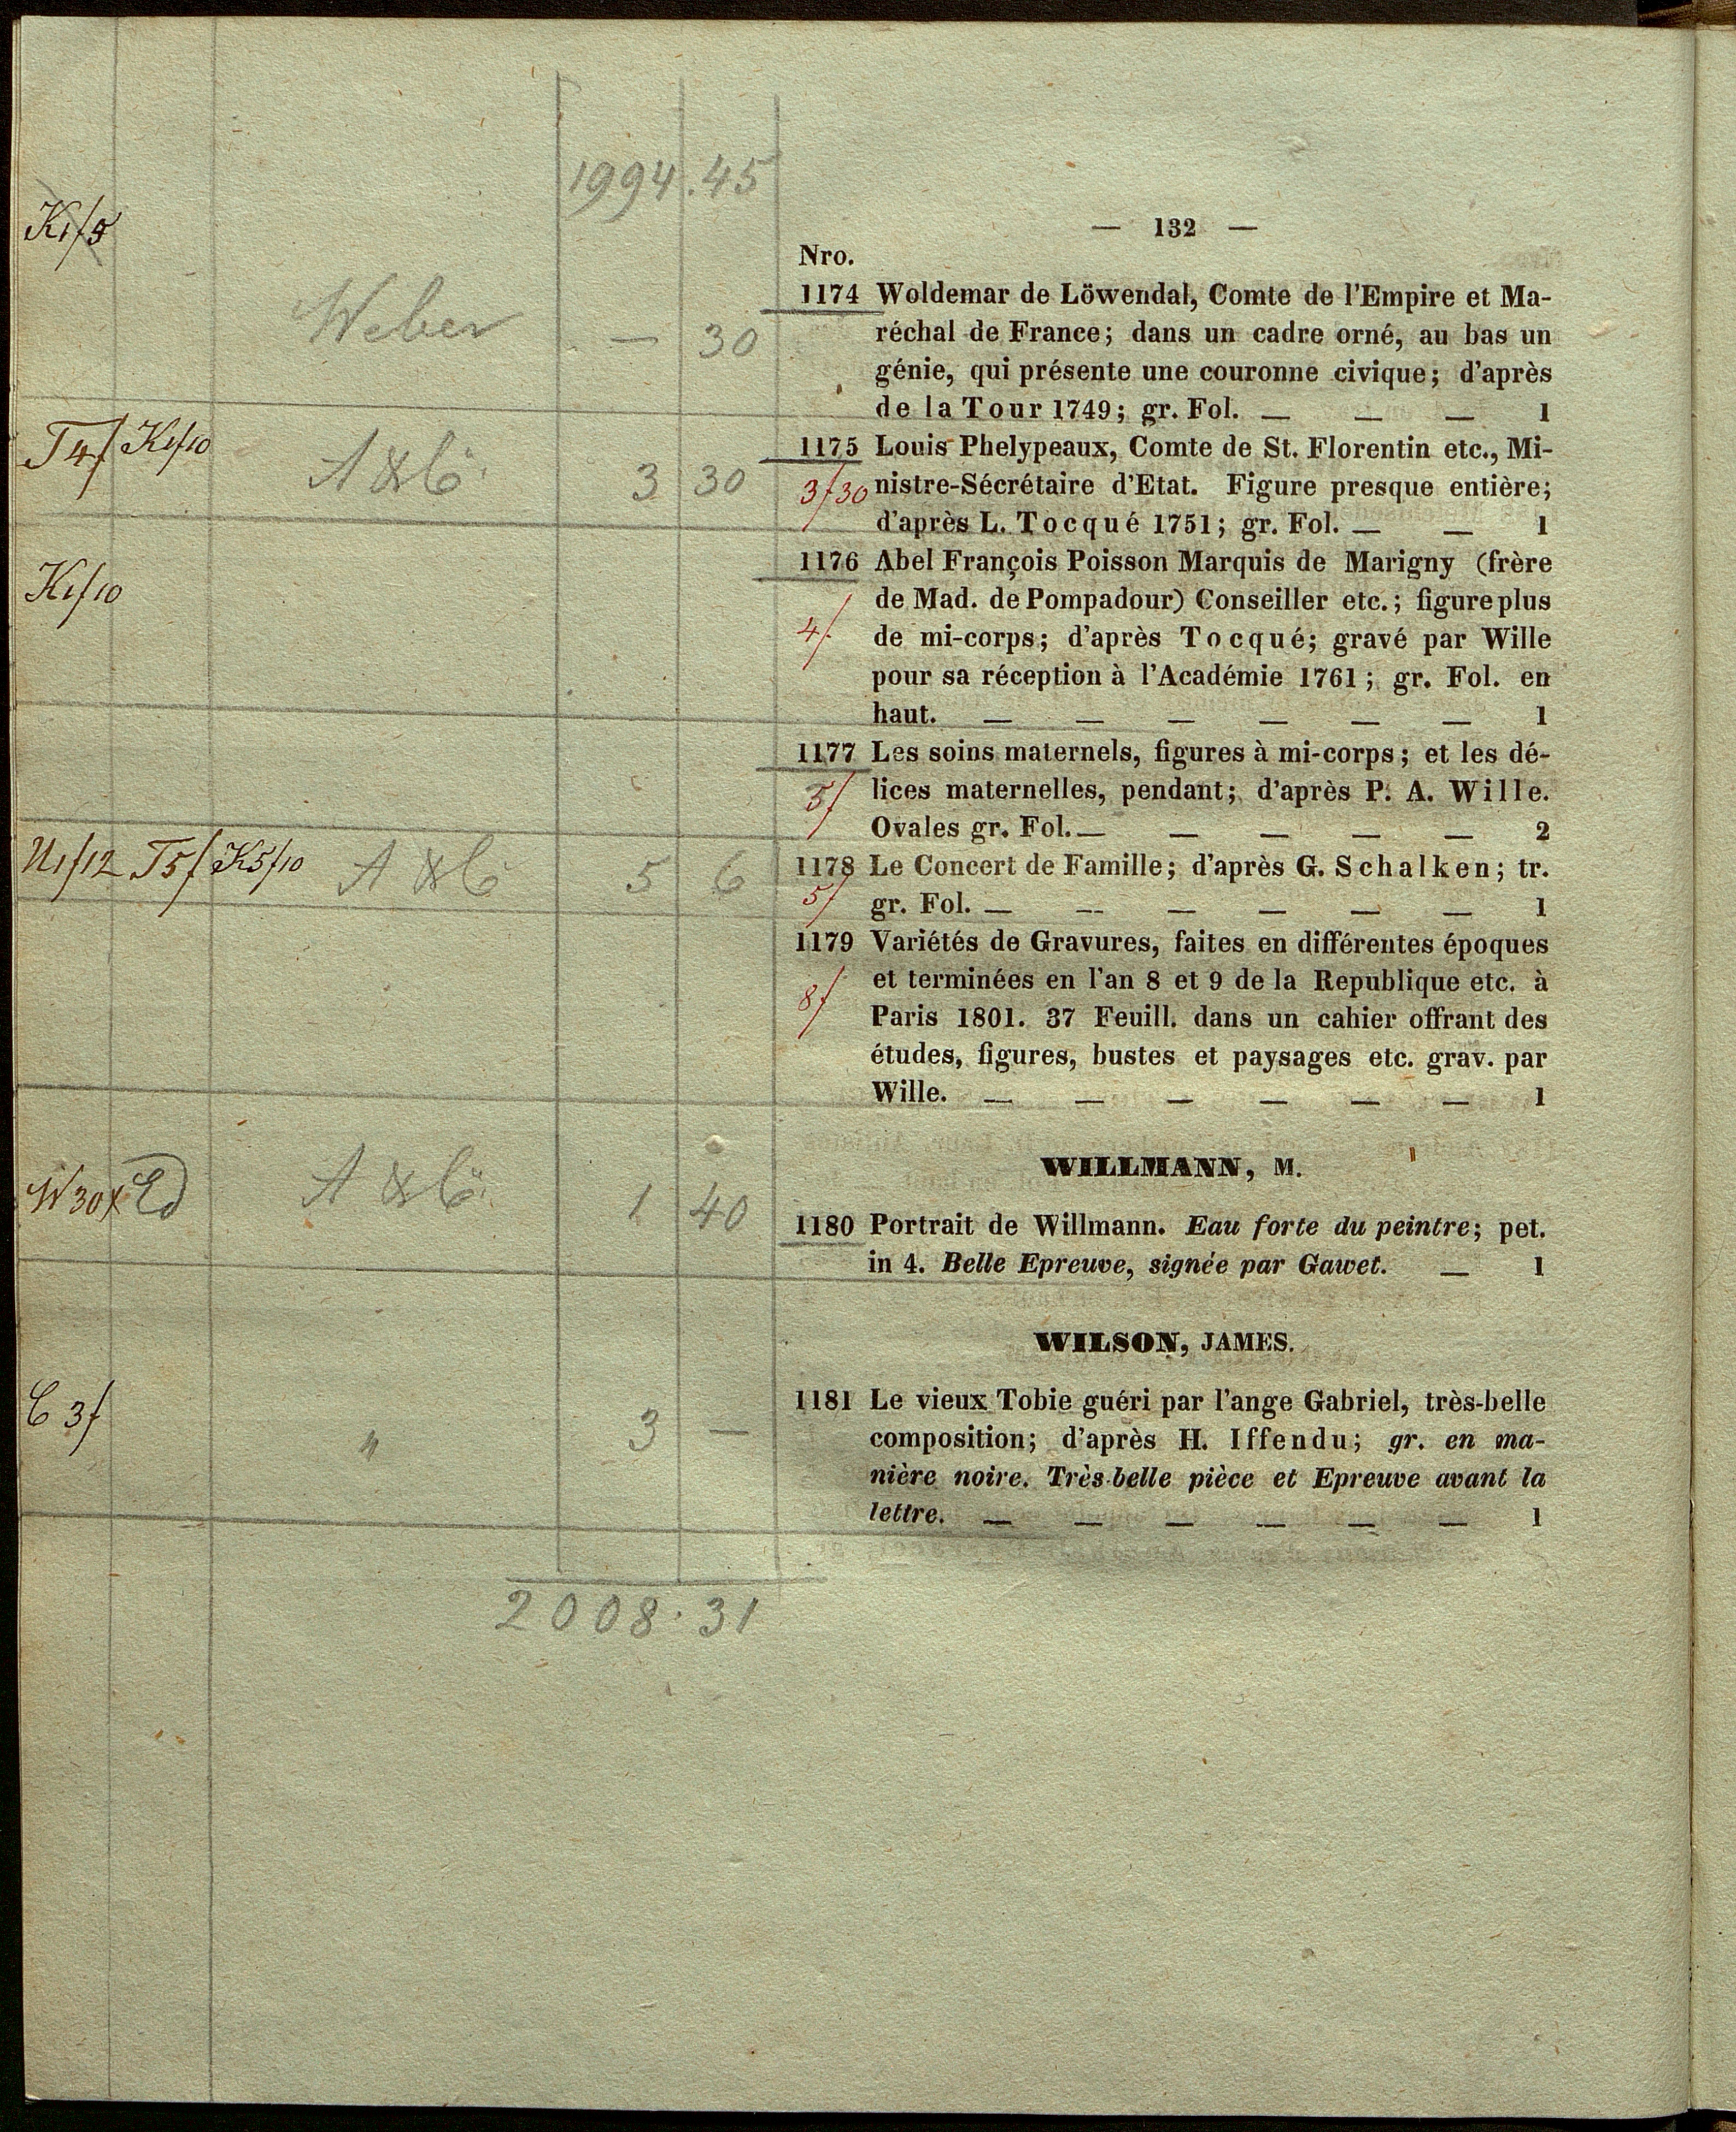 1994.45
— 132 —
K1/5
Nro.
1174 Woldemar de Löwendal, Comte de l'Empire et Ma-
Weber — 30
réchal de France; dans un cadre orné, au bas un
génie, qui présente une couronne civique; d'après
de la Tour 1749; gr. Fol. — — — 1
T4f K1/10 3 30
1175 Louis Phelypeaux, Comte de St. Florentin etc., Mi-
3f30 nistre-Sécrétaire d'Etat. Figure presque entière;
d'après L. Tocqué 1751; gr. Fol. — — 1
K1f10
1176 Abel François Poisson Marquis de Marigny (frère
de Mad. de Pompadour) Conseiller etc.; figure plus
4f. de mi-corps; d'après Tocqué; gravé par Wille
pour sa réception à l'Académie 1761; gr. Fol. en
haut. — — — — — — 1
1177 Les soins maternels, figures à mi-corps; et les dé-
5f lices maternelles, pendant; d'après P. A. Wille.
Ovales gr. Fol. — — — — — 2
U1f12 T5f K5f10 5 6
1178 Le Concert de Famille; d'après G. Schalken; tr.
5f gr. Fol. — — — — — — 1
1179 Variétés de Gravures, faites en différentes époques
8f et terminées en l'an 8 et 9 de la Republique etc. à
Paris 1801. 37 Feuill. dans un cahier offrant des
études, figures, bustes et paysages etc. grav. par
Wille. — — — — — — 1
WILLMANN, M.
W30x 1 40
1180 Portrait de Willmann. Eau forte du peintre; pet.
in 4. Belle Epreuve, signée par Gawet. — 1
WILSON, JAMES.
C 3f " 3 —
1181 Le vieux Tobie guéri par l'ange Gabriel, très-belle
composition; d'après H. Iffendu; gr. en ma-
nière noire. Très-belle pièce et Epreuve avant la
lettre. — — — — — — 1
2008.31